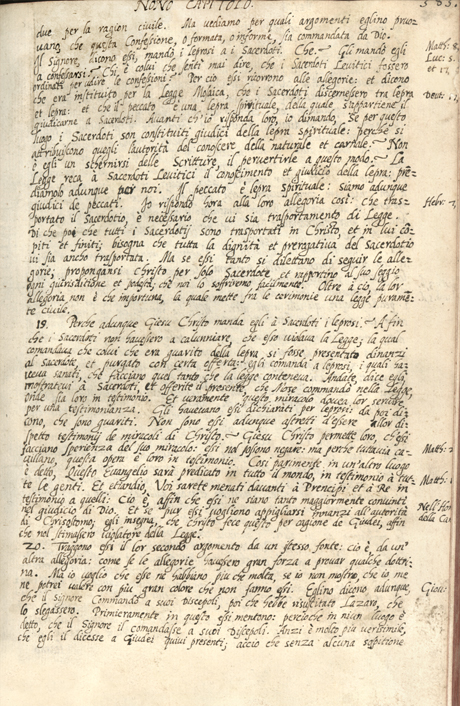 NOVO CAPITOLO. 383.
due per la ragion civile. Ma vediamo per quali argomenti eglino pruo-
vano che questa Confessione, o formata, o informe, sia commandata da Dio.
Il Signore, dicono essi, mandò i leprosi a i Sacerdoti. Che? Gli mandò egli
a confessarsi? Chi è colui che sentì mai dire, che i Sacerdoti Levitici fossero
ordinati per udire le confessioni? Per ciò essi ricorrono alle allegorie: et dicono
che era instituito per la Legge Mosaica, che i Sacerdoti discernessero tra lepra
et lepra: et che il peccato è una lepra spirituale, della quale s'appartiene il
giudicarne a Sacerdoti. Avanti ch'io risponda loro, io dimando, Se per questo
luogo i Sacerdoti son constituiti giudici della lepra spirituale: perche si
attribuiscono quegli l'autorità del conoscere della naturale et carnale? Non
è egli un schernirsi delle Scritture, il pervertirle a questo modo? La
Legge reca a Sacerdoti Levitici il conoscimento et giudicio della lepra: pre-
diamolo adunque per noi. Il peccato è lepra spirituale: siamo adunque
giudici de peccati. Io rispondo hora alla loro allegoria così: che tras-
portato il Sacerdotio, è necesario che vi sia trasportamento di Legge.
Di che poi che tutti i Sacerdotij sono trasportati in Christo, et in lui co-
piti et finiti; bisogna che tutta la dignità et prerogativa del Sacerdotio
vi sia ancho trasportata. Ma se essi tanto si dilettano di seguir le alle-
gorie; propongansi Christo per solo Sacerdote et rapportino al suo seggio
ogni giurisdittione et podestà, che noi lo soffriremo facilmente. Oltre a ciò, la lor
allegoria non è che importuna, la quale mette fra le cerimonie una legge puramē-
te civile.
19. Perche adunque Giesu Christo manda egli à Sacerdoti i leprosi? A fin
che i Sacerdoti non havessero a calunniare, che esso violava la Legge; la qual
comandava che colui che era guarito della lepra si fosse presentato dinanzi
al Sacerdote et purgato con certa offerta: egli comanda a leprosi, i quali ha-
veva sanati, che facciano quel tanto che la legge conteneva. Andate, dice egli,
mostratevi à Sacerdoti, et offerite il presente, che Mose commandò nella Legge,
onde sia loro in testimonio. Et veramente questo miracolo dovea lor servire
per una testimonianza. Gli havevano essi dichiariti per leprosi: da poi di-
cono, che sono guariti. Non sono essi adunque astretti d'essere a llor di-
spetto testimonij de miracoli di Christo? Giesu Christo permette loro, ch'essi
facciano sperienza del suo miracolo: essi nol possono negare: ma perche tuttavia ca-
villano, questa opera è loro in testimonio. Così parimente in un'altro luogo
è detto, Questo Evangelio sarà predicato in tutto il mondo, in testimonio à tut-
te le genti. Et etiandio, Voi sarete menati davanti à Prencipi et à Re in
testimonio a quelli: Cio è, affin che essi ne siano tanto maggiormente convinti
nel giudicio di Dio. Et se pur essi vogliono appigliarsi innanzi all'autorità
di Crisostomo; egli insegna, che Christo fece questo per cagione de Giudei, affin
che nol stimassero violatore della Legge.
20. Traggono essi il lor secondo argomento da un stesso fonte: cio è, da un'
altra allegoria: come se le allegorie havessero gran forza a provar qualche dottri-
na. Ma io voglio che esse ne habbiano piu che molta, se io non mostro, che io me
ne potrei valere con piu gran colore che non fanno essi. Eglino dicono adunque,
che il Signore Commandò a suoi Discepoli, poi che hebbe risuscitato Lazaro, che
lo slegassero. Primieramente in questo essi mentono: perche in niun luogo è
detto, che il Signore il comandasse a suoi Discepoli. Anzi è molto piu verisimile,
che egli il dicesse a Giudei quivi presenti; accio che senza alcuna sospitione
Matth: 8,
Luc: 5.
et 17,
Deut:
Hebr: 7,
Matth:
Matth:
Nell'Hom
della Can
Giou: